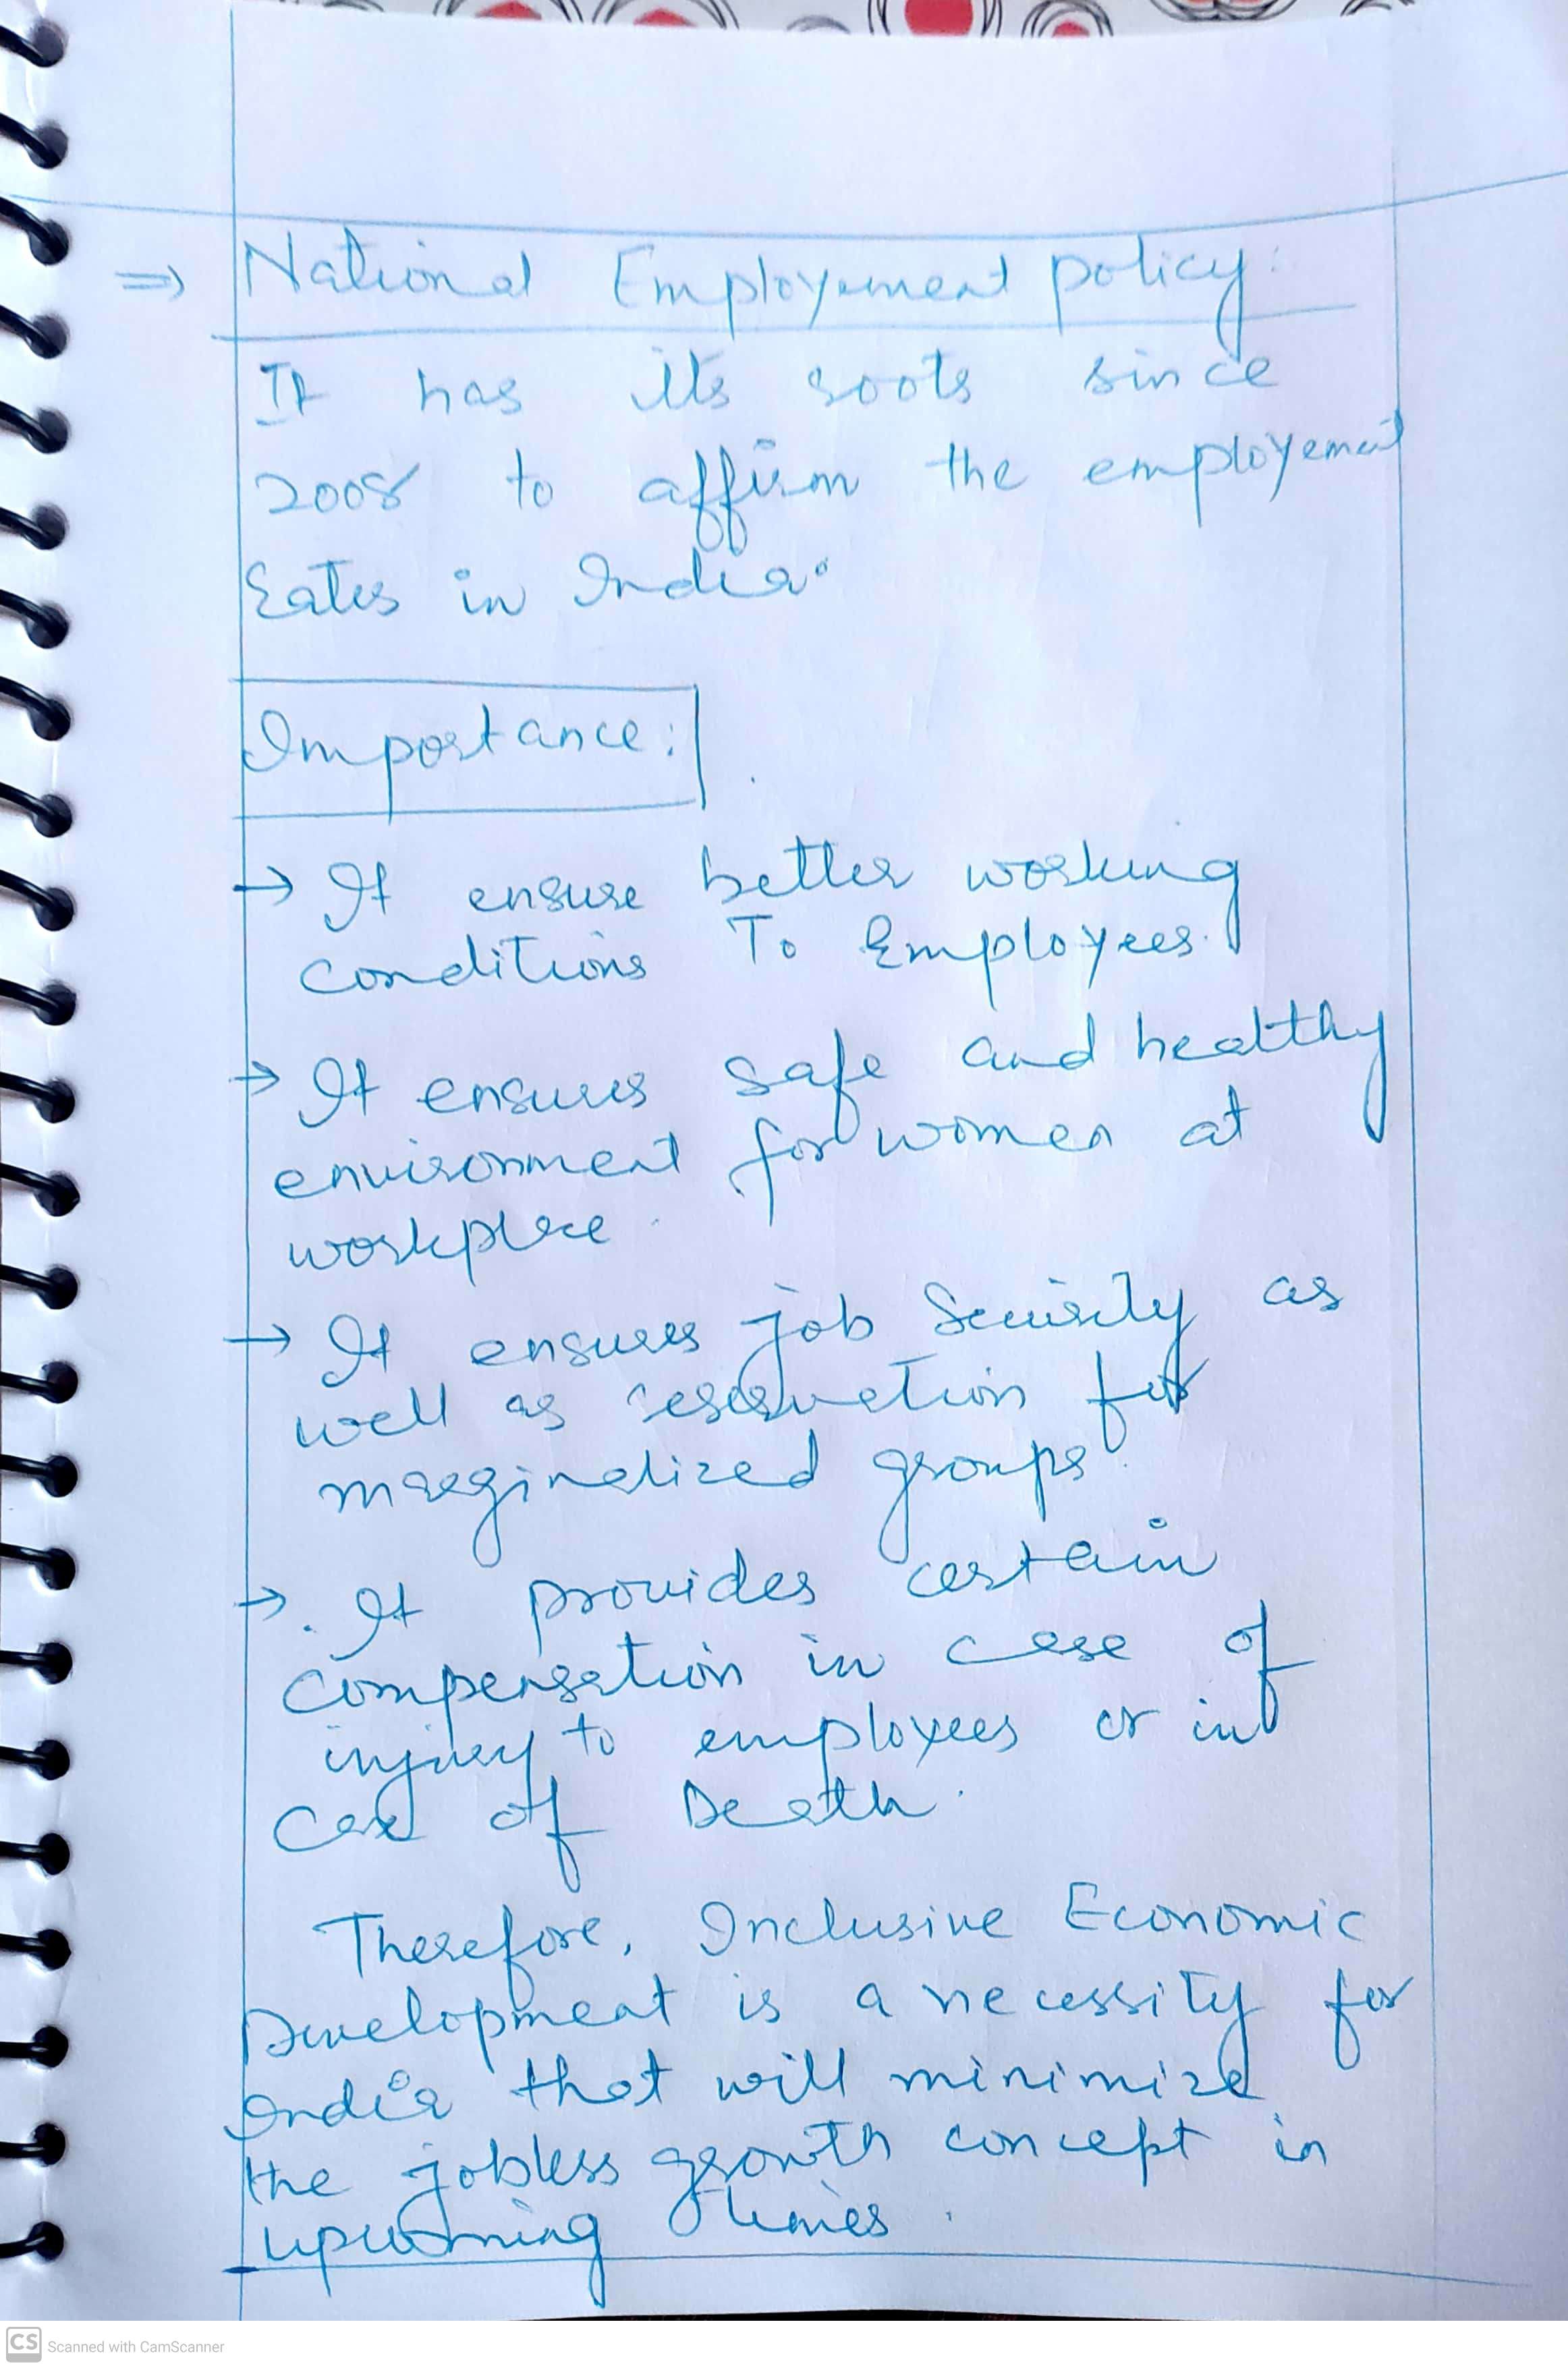 ⇒ National Employement policy:
It has its roots since
2008 to affirm the employement
rates in India.
Importance:
→ It ensure better working
conditions To Employees.
→ It ensures safe and healthy
environment for women at
workplace.
→ It ensures job Security as
well as reservation for
marginalized groups.
→ It provides certain
compensation in case of
injury to employees or in
case of Death.
Therefore, Inclusive Economic
Development is a necessity for
India that will minimize
the jobless growth concept in
upcoming times.
CS Scanned with CamScanner